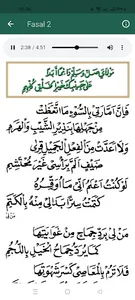 Fasal 2
2:38 / 4:51
مَوْلَايَ صَلِّ وَسَلِّمْ دَائِمًا أَبَدًا
عَلَى حَبِيبِكَ خَيْرِ الْخَلْقِ كُلِّهِمِ
فَإِنَّ أَمَّارَتِي بِالسُّوءِ مَا اتَّعَظَتْ
مِنْ جَهْلِهَا بِنَذِيرِ الشَّيْبِ وَالْهَرَمِ
وَلَا أَعَدَّتْ مِنَ الْفِعْلِ الْجَمِيلِ قِرَى
ضَيْفٍ أَلَمَّ بِرَأْسِي غَيْرَ مُحْتَشِمِ
لَوْ كُنْتُ أَعْلَمُ أَنِّي مَا أُوَقِّرُهُ
كَتَمْتُ سِرًّا بَدَا لِي مِنْهُ بِالْكَتَمِ
مَنْ لِي بِرَدِّ جِمَاحٍ مِنْ غَوَايَتِهَا
كَمَا يُرَدُّ جِمَاحُ الْخَيْلِ بِاللُّجُمِ
فَلَا تَرُمْ بِالْمَعَاصِي كَسْرَ شَهْوَتِهَا